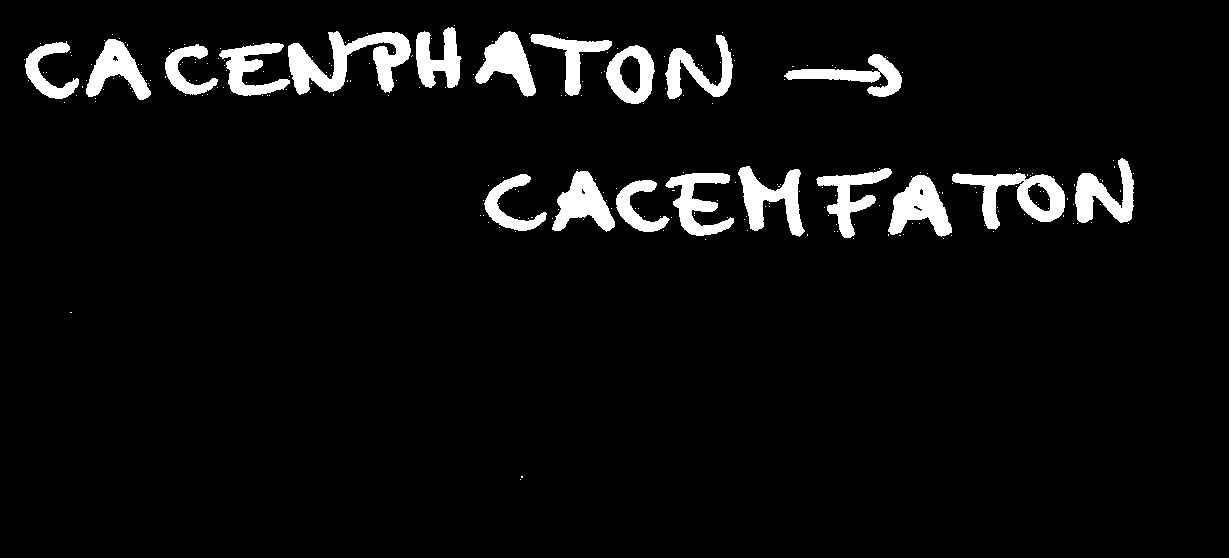 CACENPHATON →
CACEMFATON